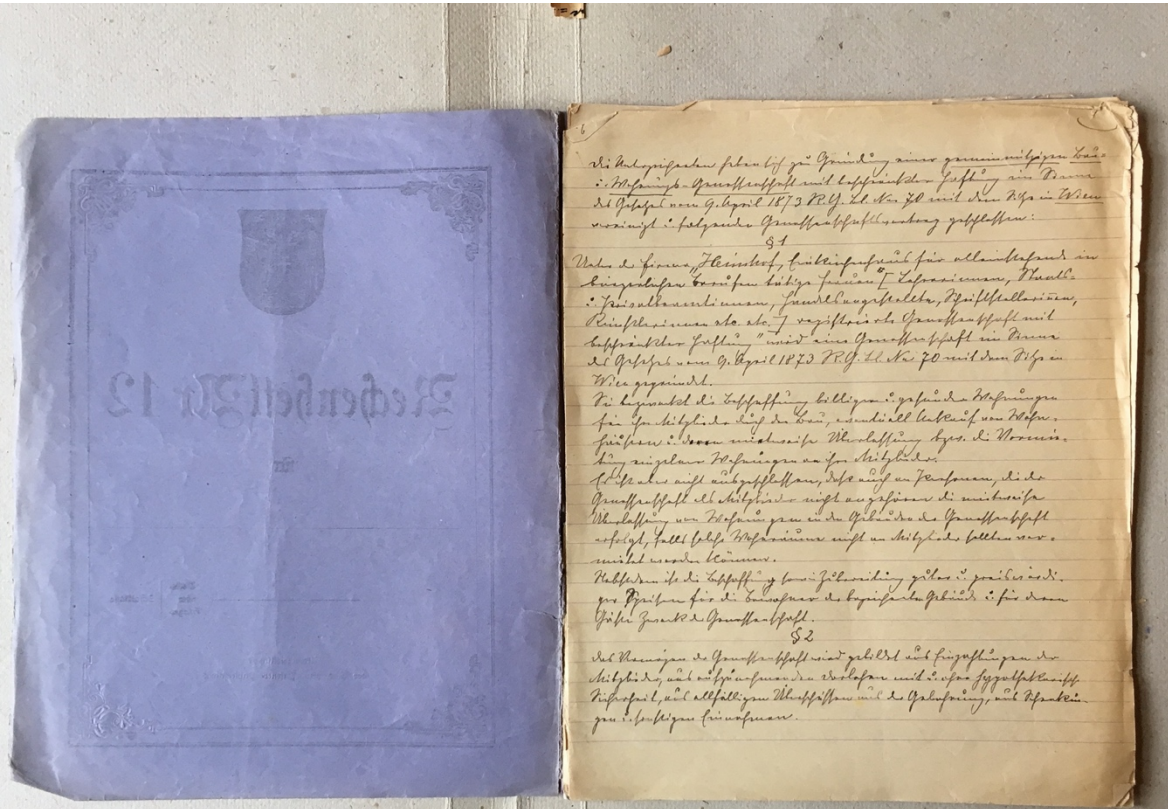 Rechenheft Nr 12
für
6
Die Unterzeichneten haben sich zu Gründung einer gemeinnützigen Bau-
u. Wohnungs-Genossenschaft mit beschränkter Haftung im Sinne
des Gesetzes vom 9. April 1873 R.G. Bl. No. 70 mit dem Sitze in Wien
vereinigt u. folgenden Genossenschaftsvertrag geschlossen:
§ 1
Unter der Firma „Heimhof, Einküchenhaus für alleinstehende in
bürgerlichen Berufen tätige Frauen" [Lehrerinnen, Staats-
u. Privatbeamtinnen, Handelsangestellte, Schriftstellerinnen,
Künstlerinnen etc. etc.] registrierte Genossenschaft mit
beschränkter Haftung" wird eine Genossenschaft im Sinne
des Gesetzes vom 9. April 1873 R.G. Bl. No. 70 mit dem Sitze in
Wien gegründet.
Sie bezweckt die Beschaffung billiger u. gesunder Wohnungen
für ihre Mitglieder durch den Bau, eventuell Ankauf von Wohn-
häusern u. deren mietweise Überlassung bzw. die Vermie-
tung einzelner Wohnungen an ihre Mitglieder.
Es ist aber nicht ausgeschlossen, dass auch an Personen, die der
Genossenschaft als Mitglieder nicht angehören die mietweise
Überlassung von Wohnungen in den Gebäuden der Genossenschaft
erfolgt, falls solche Wohnräume nicht an Mitglieder sollten ver-
mietet werden können.
Außerdem ist die Beschaffung sowie Zubereitung guter u. preiswürdi-
ger Speisen für die Bewohner der bezeichneten Gebäude u. für deren
Gäste Zweck der Genossenschaft.
§ 2
Das Vermögen der Genossenschaft wird gebildet aus Einzahlungen der
Mitglieder, aus aufzunehmenden Darlehen mit u. ohne hypothekarisch
Sicherheit, aus allfälligen Überschüssen aus der Gebahrung, aus Schenkun-
gen u. sonstigen Einnahmen.